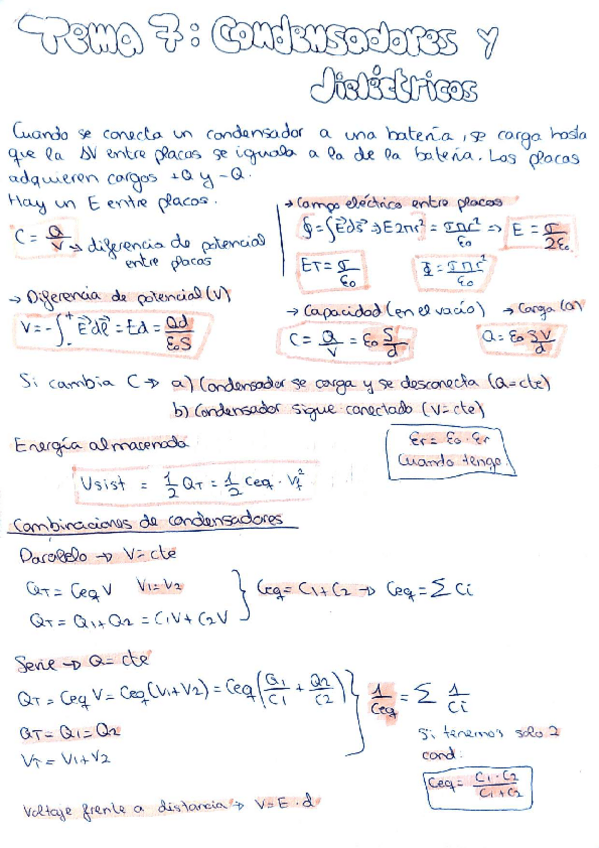 Tema 7: Condensadores y
dieléctricos
Cuando se conecta un condensador a una batería, se carga hasta
que la ΔV entre placas se iguala a la de la batería. Las placas
adquieren cargas +Q y -Q.
Hay un E entre placas.
C = Q/V → diferencia de potencial
entre placas
→ Campo eléctrico entre placas
∮ = ∫E⃗ds⃗ → E2πr² = σπr²/ε₀ ⇒ E = σ/2ε₀
ET = σ/ε₀ Φ = σπr²/ε₀
→ Diferencia de potencial (V)
V = -∫₋⁺ E⃗dl⃗ = Ed = Qd/ε₀S
→ Capacidad (en el vacío)
C = Q/V = ε₀ S/d
→ Carga (Q)
Q = ε₀ SV/d
Si cambia C → a) Condensador se carga y se desconecta (Q=cte)
b) Condensador sigue conectado (V=cte)
Energía almacenada
Usist = 1/2 QT = 1/2 Ceq · Vf²
Er = ε₀ · εr
Cuando tengo.
Combinaciones de condensadores
Paralelo → V=cte
QT = Ceq V V1=V2
QT = Q1+Q2 = C1V + C2V
Ceq = C1+C2 → Ceq = Σ Ci
Serie → Q=cte
QT = Ceq V = Ceq (V1+V2) = Ceq (Q1/C1 + Q2/C2)
QT = Q1 = Q2
VT = V1+V2
1/Ceq = Σ 1/Ci
Si tenemos solo 2
cond:
Ceq = C1·C2/C1+C2
Voltaje frente a distancia → V=E·d